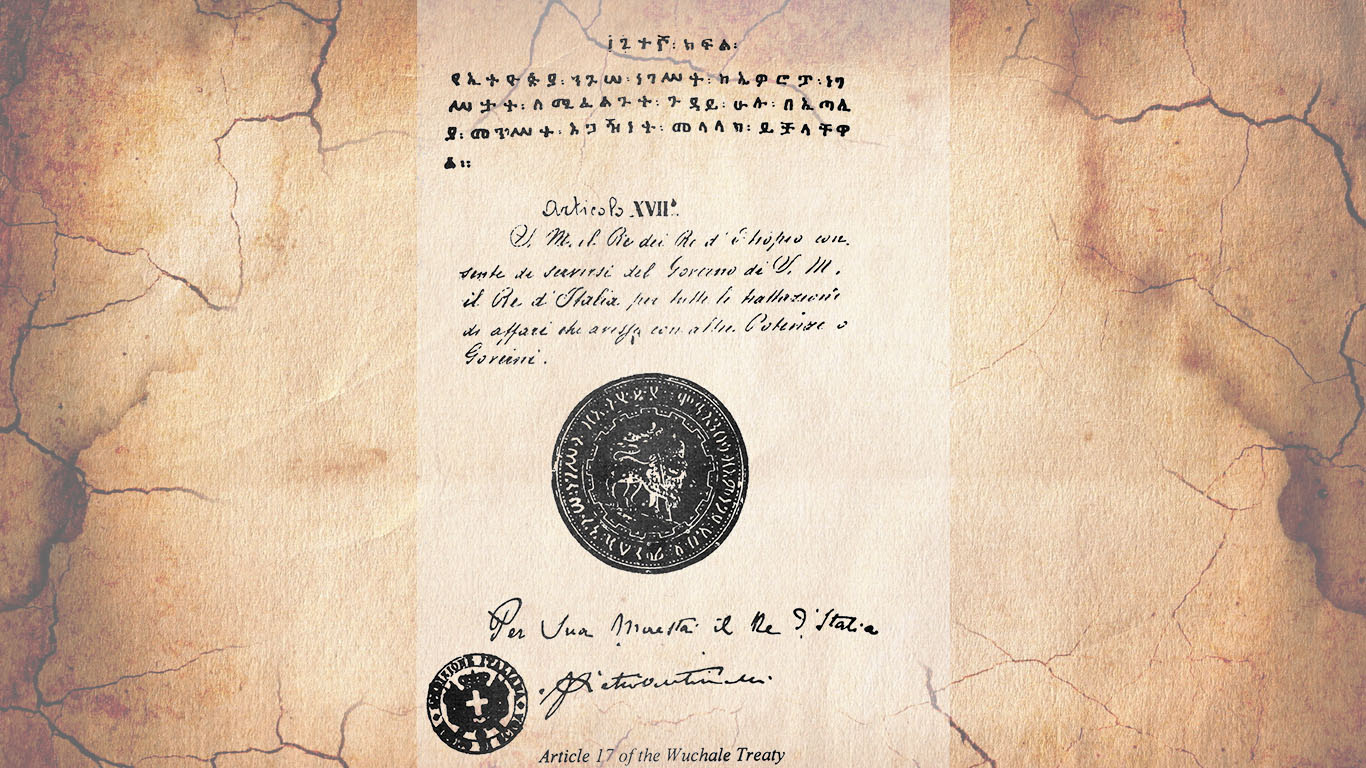 ፲፯ተኛ፡ክፍል፡
የኢትዮጵያ፡ንጉሠ፡ነገሥት፡ከኢዎሮፓ፡ነገ
ሥታት፡ለሚፈልጉት፡ጉዳይ፡ሁሉ፡በኢጣሊ
ያ፡መንግሥት፡አጋዥነት፡መላላክ፡ይቻላቸዋ
ል።
Articolo XVII°.
S. M. il Re dei Re d'Etiopia con-
sente di servirsi del Governo di S. M.
il Re d'Italia per tutte le trattazioni
di affari che avesse con altre Potenze o
Governi.
Per Sua Maestà il Re d'Italia
Pietro Antonelli
ITALIANA
Article 17 of the Wuchale Treaty